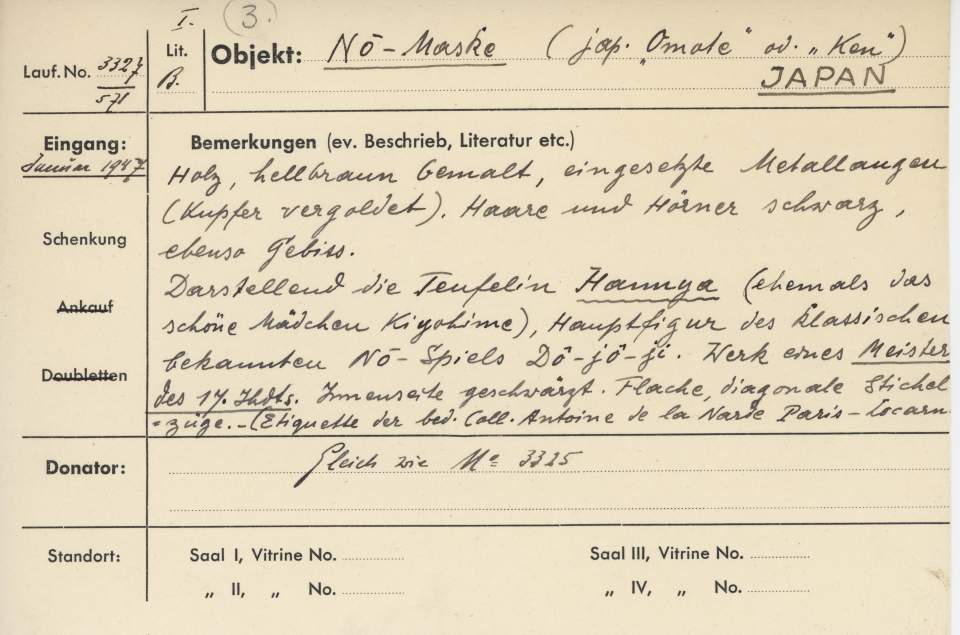 I. (3.)
Lauf. No. 3327 / 571
Lit. B.
Objekt: Nō-Maske (jap. "Omote" od. „Ken")
JAPAN
Eingang:
Januar 1947
Bemerkungen (ev. Beschrieb, Literatur etc.)
Holz, hellbraun bemalt, eingesetzte Metallaugen
(Kupfer vergoldet). Haare und Hörner schwarz,
ebenso Gebiss.
Schenkung
Darstellend die Teufelin Hannya (ehemals das
Ankauf
schöne Mädchen Kiyohime), Hauptfigur des klassischen
bekannten Nō-Spiels Dō-jō-ji. Werk eines Meister
Doubletten
des 17. Jhdts. Innenseite geschwärzt. Flache, diagonale Stichel
-züge.-(Etiquette der bed. Coll. Antoine de la Narde Paris-Locarn
Donator: Gleich wie No 3325
Standort:
Saal I, Vitrine No.
Saal III, Vitrine No.
„ II, „ No.
„ IV, „ No.